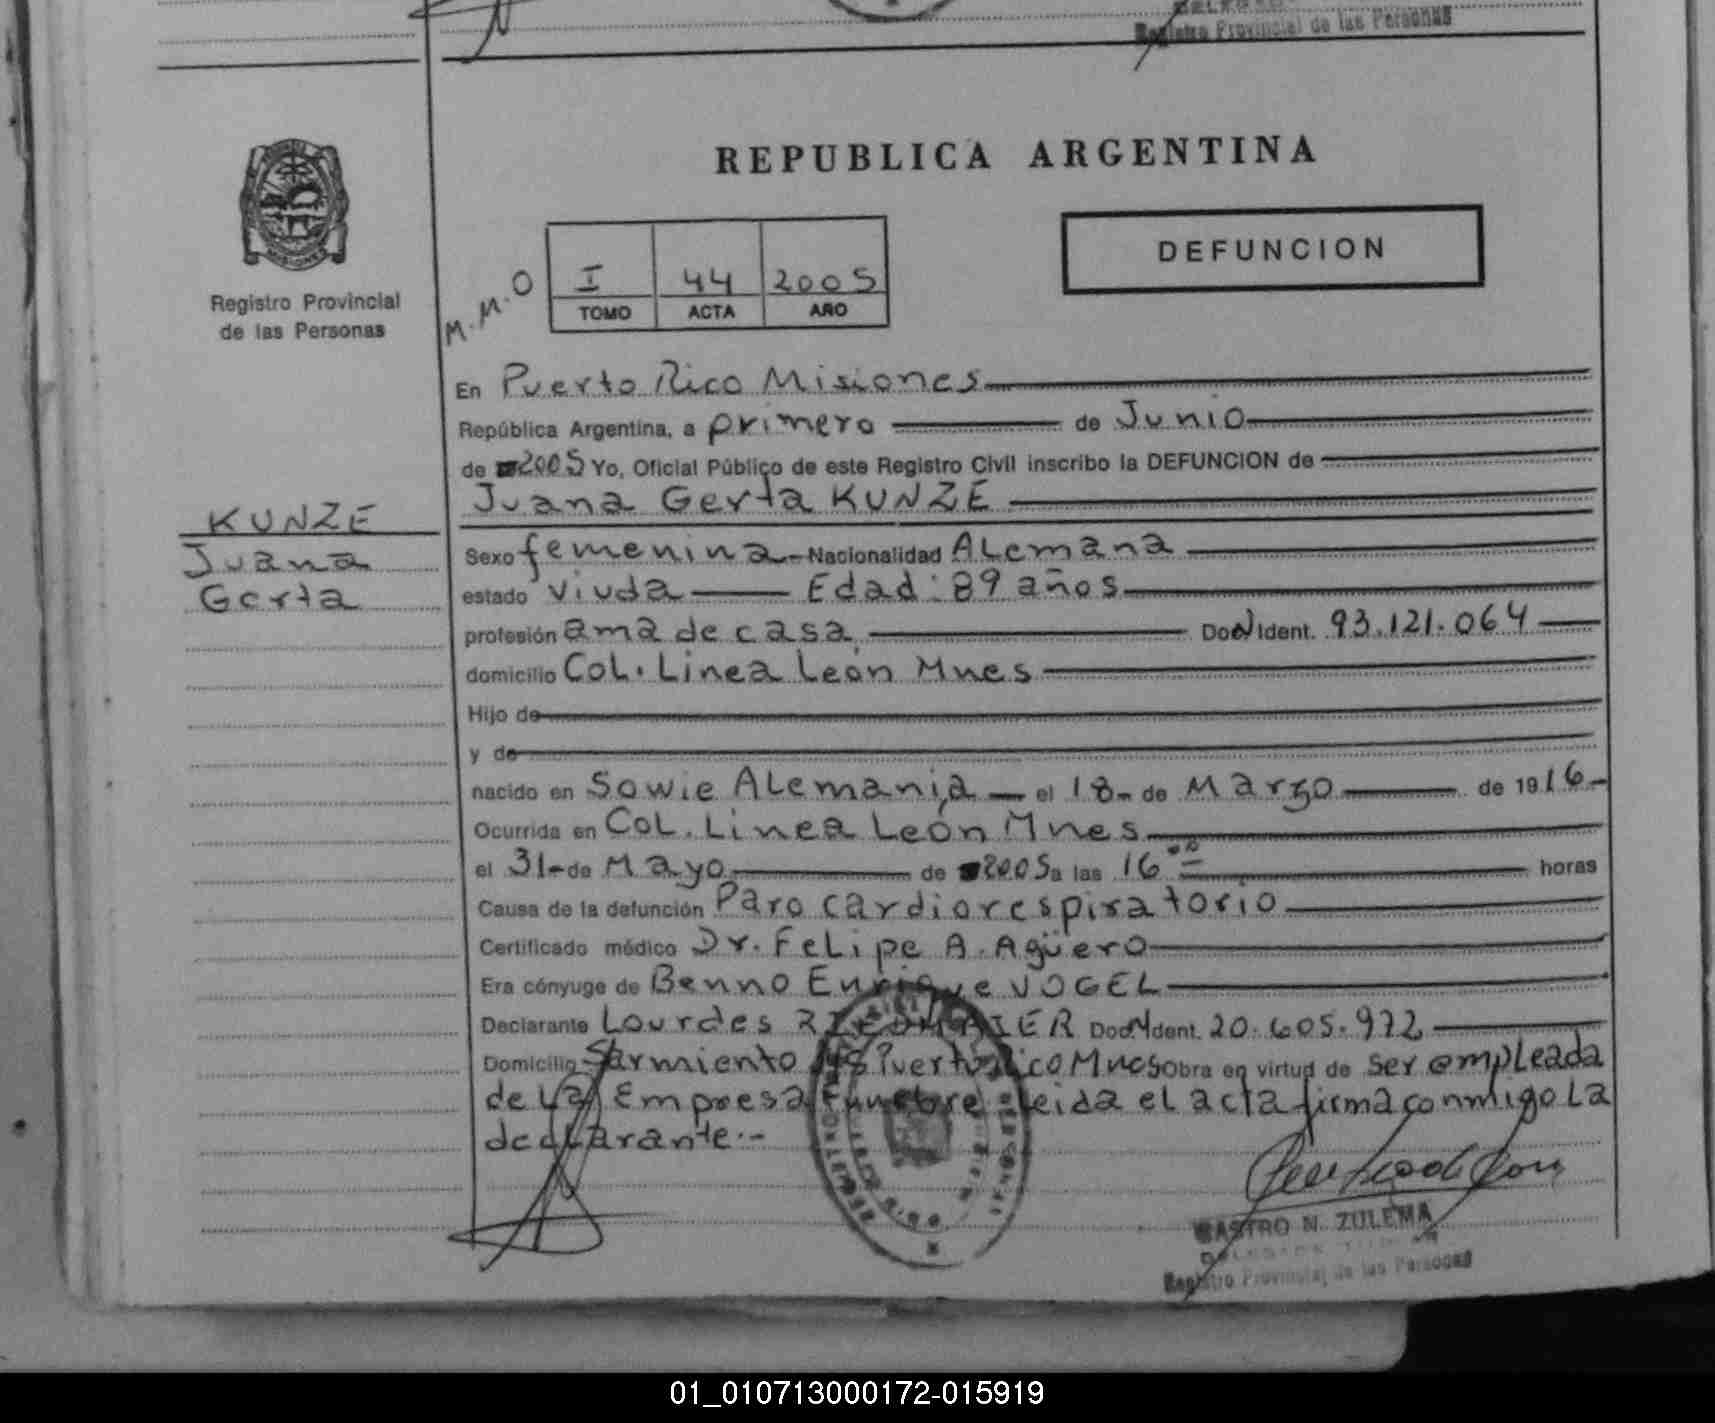 Registro Provincial de las Personas
REPUBLICA ARGENTINA
MISIONES
Registro Provincial
de las Personas
M.M.O
I 44 2005
TOMO ACTA AÑO
DEFUNCION
En Puerto Rico Misiones
República Argentina, a primero de Junio
de 2005 Yo, Oficial Público de este Registro Civil inscribo la DEFUNCION de
Juana Gerta KUNZE
KUNZE
Juana
Gerta
Sexo femenina Nacionalidad Alemana
estado viuda Edad: 89 años
profesión ama de casa Doc N Ident. 93.121.064
domicilio Col. Linea León Mnes
Hijo de
y de
nacido en Sowie Alemania el 18 de Marzo de 1916
Ocurrida en Col. Linea León Mnes
el 31 de Mayo de 2005 a las 16 00 horas
Causa de la defunción Paro cardiorespiratorio
Certificado médico Dr. Felipe A. Agüero
Era cónyuge de Benno Enrique VOGEL
Declarante Lourdes Doc N Ident. 20.605.972
Domicilio Sarmiento Puerto Rico Mnes Obra en virtud de ser empleada
de la Empresa Funebre leida el acta firma conmigo la
declarante.-
CASTRO N. ZULEMA
Registro Provincial de las Personas
01_010713000172-015919